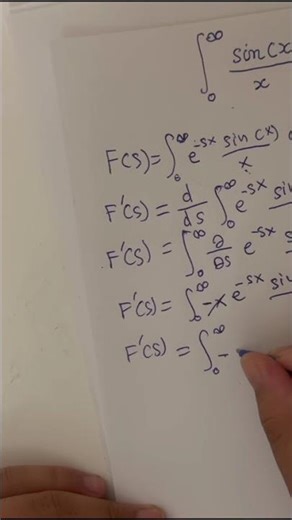 ∫₀^∞ sin(x / x
F(s) = ∫₀^∞ e^-sx sin(x) / x
F'(s) = d/ds ∫₀^∞ e^-sx sin
F'(s) = ∫₀^∞ ∂/∂s e^-sx s
F'(s) = ∫₀^∞ -x e^-sx sin
F'(s) = ∫₀^∞ -